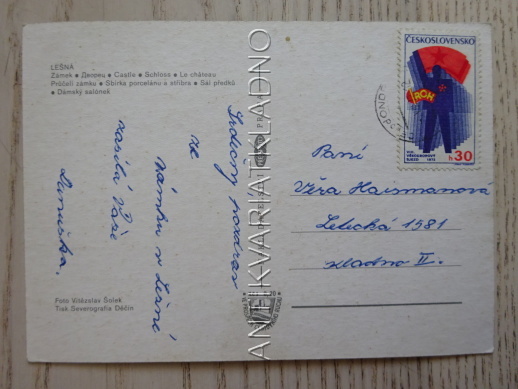 LEŠNÁ
Zámek • Дворец • Castle • Schloss • Le château
Průčelí zámku • Sbírka porcelánu a stříbra • Sál předků
• Dámský salónek
Srdečný pozdrav
ze
zámku v Lešné
zasílá Vaše
Lanuška.
Foto Vítězslav Šolek
Tisk Severografia Děčín
ANTIKVARIATKLADNO
ČESKOSLOVENSKO
ROH
VIII.
VŠEODBOROVÝ
SJEZD 1972
h 30
Paní
Věra Haismanová
Letecká 1581
Kladno II.